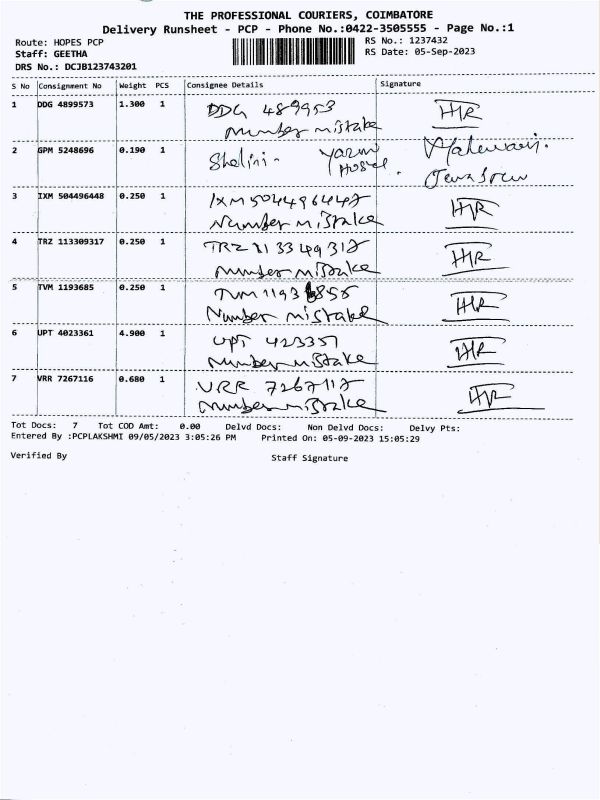 THE PROFESSIONAL COURIERS, COIMBATORE
Delivery Runsheet - PCP - Phone No.:0422-3505555 - Page No.:1
Route: HOPES PCP
RS No.: 1237432
Staff: GEETHA
RS Date: 05-Sep-2023
DRS No.: DCJB123743201
S No Consignment No Weight PCS Consignee Details Signature
1 DDG 4899573 1.300 1 DDG 489953
Number mistake
2 GPM 5248696 0.190 1 Shalini-
Hostel.
3 IXM 504496448 0.250 1
Number mistake
4 TRZ 113309317 0.250 1
Number mistake
5 TVM 1193685 0.250 1
Number mistake
6 UPT 4023361 4.900 1 UPT 423357
Number mistake
7 VRR 7267116 0.680 1 VRR 7267117
Number mistake
Tot Docs: 7 Tot COD Amt: 0.00 Delvd Docs: Non Delvd Docs: Delvy Pts:
Entered By :PCPLAKSHMI 09/05/2023 3:05:26 PM Printed On: 05-09-2023 15:05:29
Verified By Staff Signature